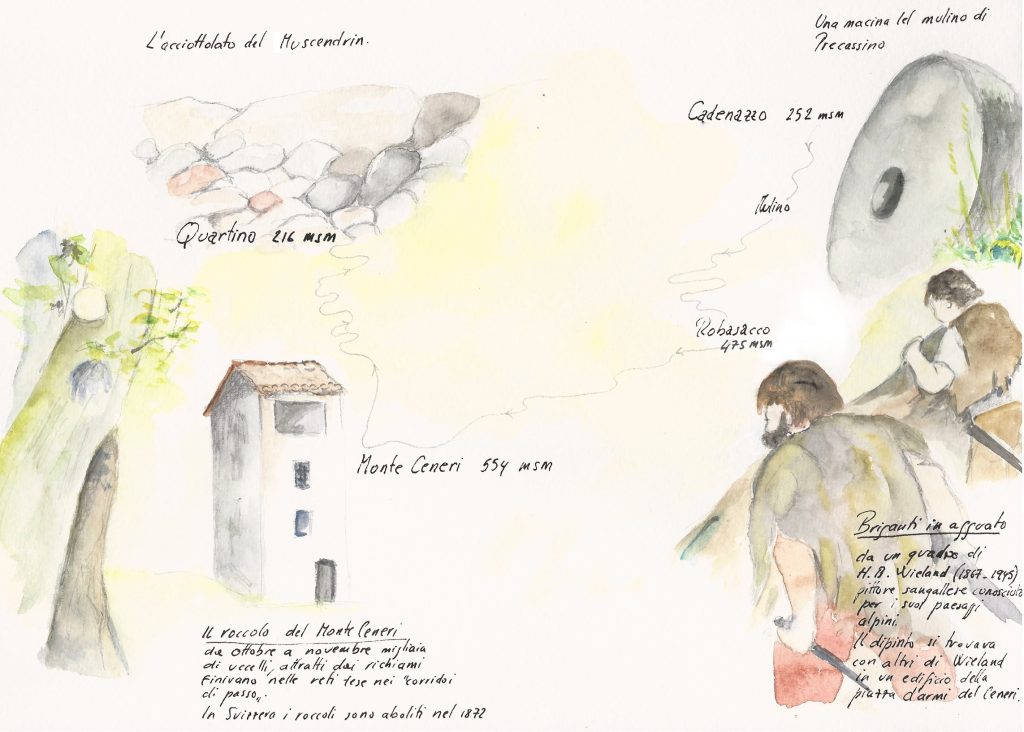 L'acciottolato del Muscendrin.
Una macina del mulino di
Precassino
Cadenazzo 252 msm
Mulino
Quartino 216 msm
Robasacco
475 msm
Monte Ceneri 554 msm
Il roccolo del Monte Ceneri
da ottobre a novembre migliaia
di uccelli, attratti dai richiami
finivano nelle reti tese nei "corridoi
di passo".
In Svizzera i roccoli sono aboliti nel 1872
Briganti in agguato
da un quadro di
H.B. Wieland (1867-1945)
pittore sangallese conosciuto
per i suoi paesagi
alpini.
Il dipinto si trovava
con altri di Wieland
in un edificio della
piazza d'armi del Ceneri.